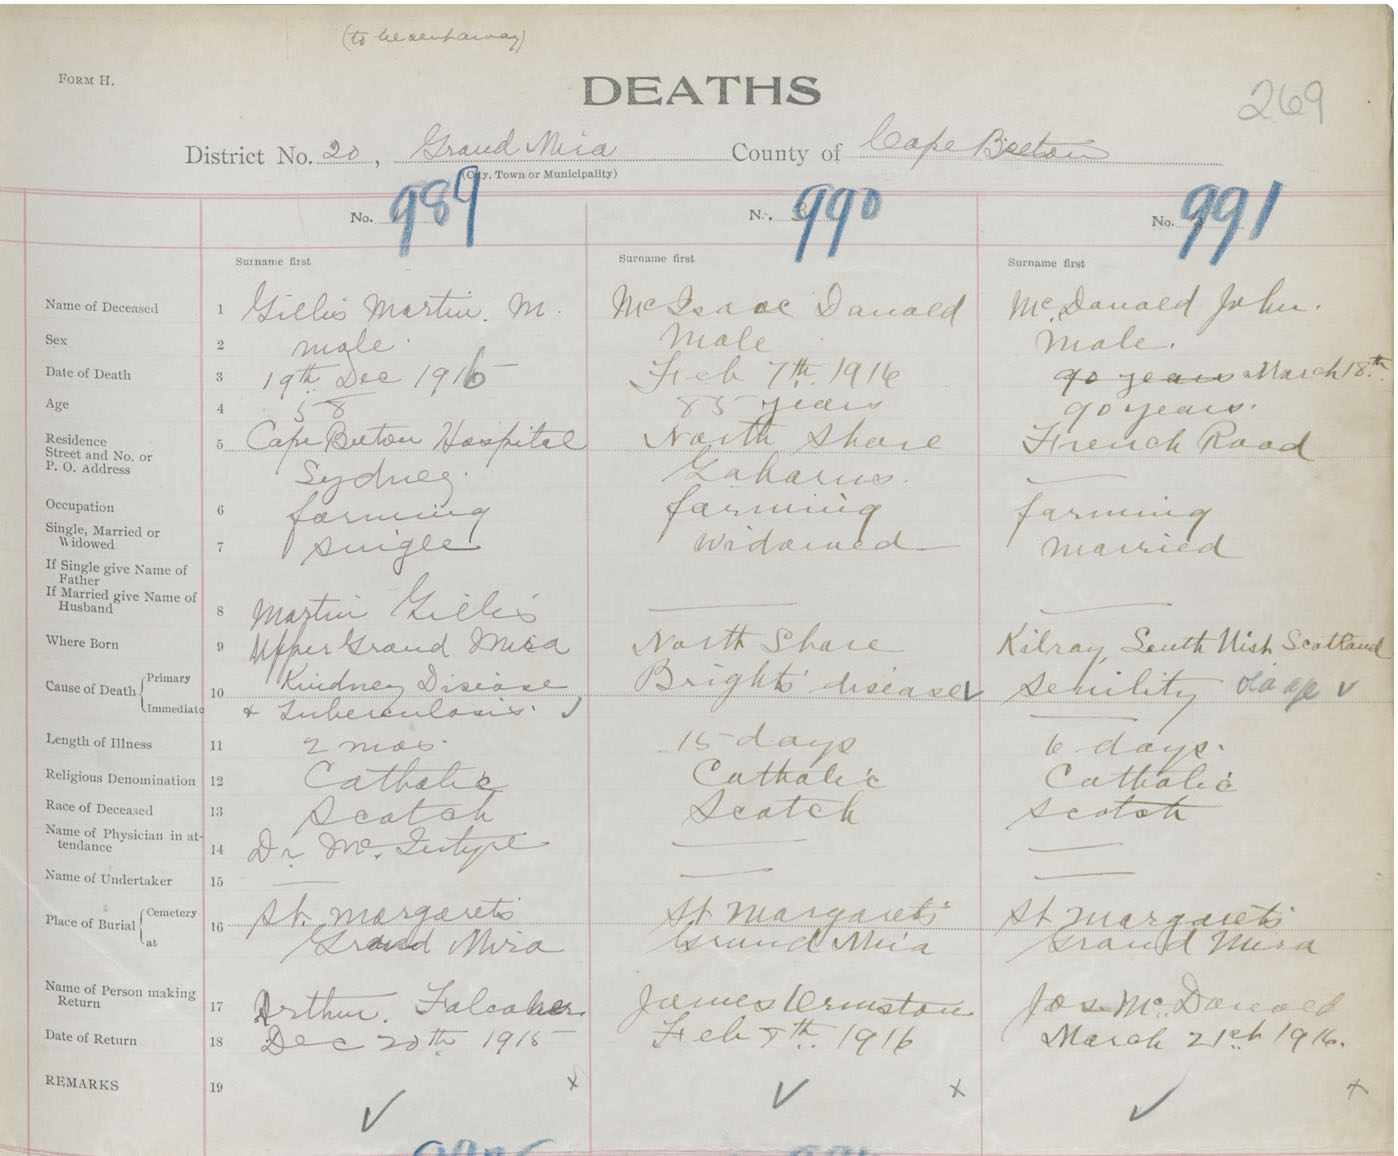 (to be sent away)
FORM H.
DEATHS
269
District No. 20, Grand Mira County of Cape Breton
(City, Town or Municipality)
No. 989 No. 990 No. 991
Surname first Surname first Surname first
Name of Deceased 1 Gillis Martin. M. McIsaac Donald McDonald John.
Sex 2 male. Male Male.
Date of Death 3 19th Dec 1915 Feb 7th. 1916 90 years March 18th
Age 4 58 85 years 90 years.
Residence Street and No. or P. O. Address 5 Cape Breton Hospital North Shore French Road
Sydney. Gabarus.
Occupation 6 farming farming farming
Single, Married or Widowed 7 Single Widowed married
If Single give Name of Father
If Married give Name of Husband 8 Martin Gillis
Where Born 9 Upper Grand Mira North Shore Kilray, South Uist Scotland
Cause of Death Primary Immediate 10 Kindney Disiase Brights' disease Senility old age
& Tuberculosis.
Length of Illness 11 2 mos. 15 days 6 days.
Religious Denomination 12 Catholic Catholic Catholic
Race of Deceased 13 Scotch Scotch Scotch
Name of Physician in attendance 14 Dr. McIntyre
Name of Undertaker 15
Place of Burial Cemetery at 16 St. Margarets St Margarets St Margarets
Grand Mira Grand Mira Grand Mira
Name of Person making Return 17 Arthur. Falconer James Urmston Jos. McDonald
Date of Return 18 Dec 20th 1915 Feb 8th. 1916 March 21st 1916.
REMARKS 19